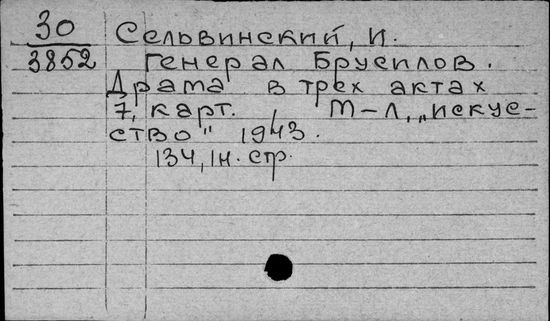 30
3852
Сельвинский, И.
Генерал Брусилов.
Драма в трех актах
7, карт. М-Л, „искус-
ство" 1943.
134, 1н. стр.